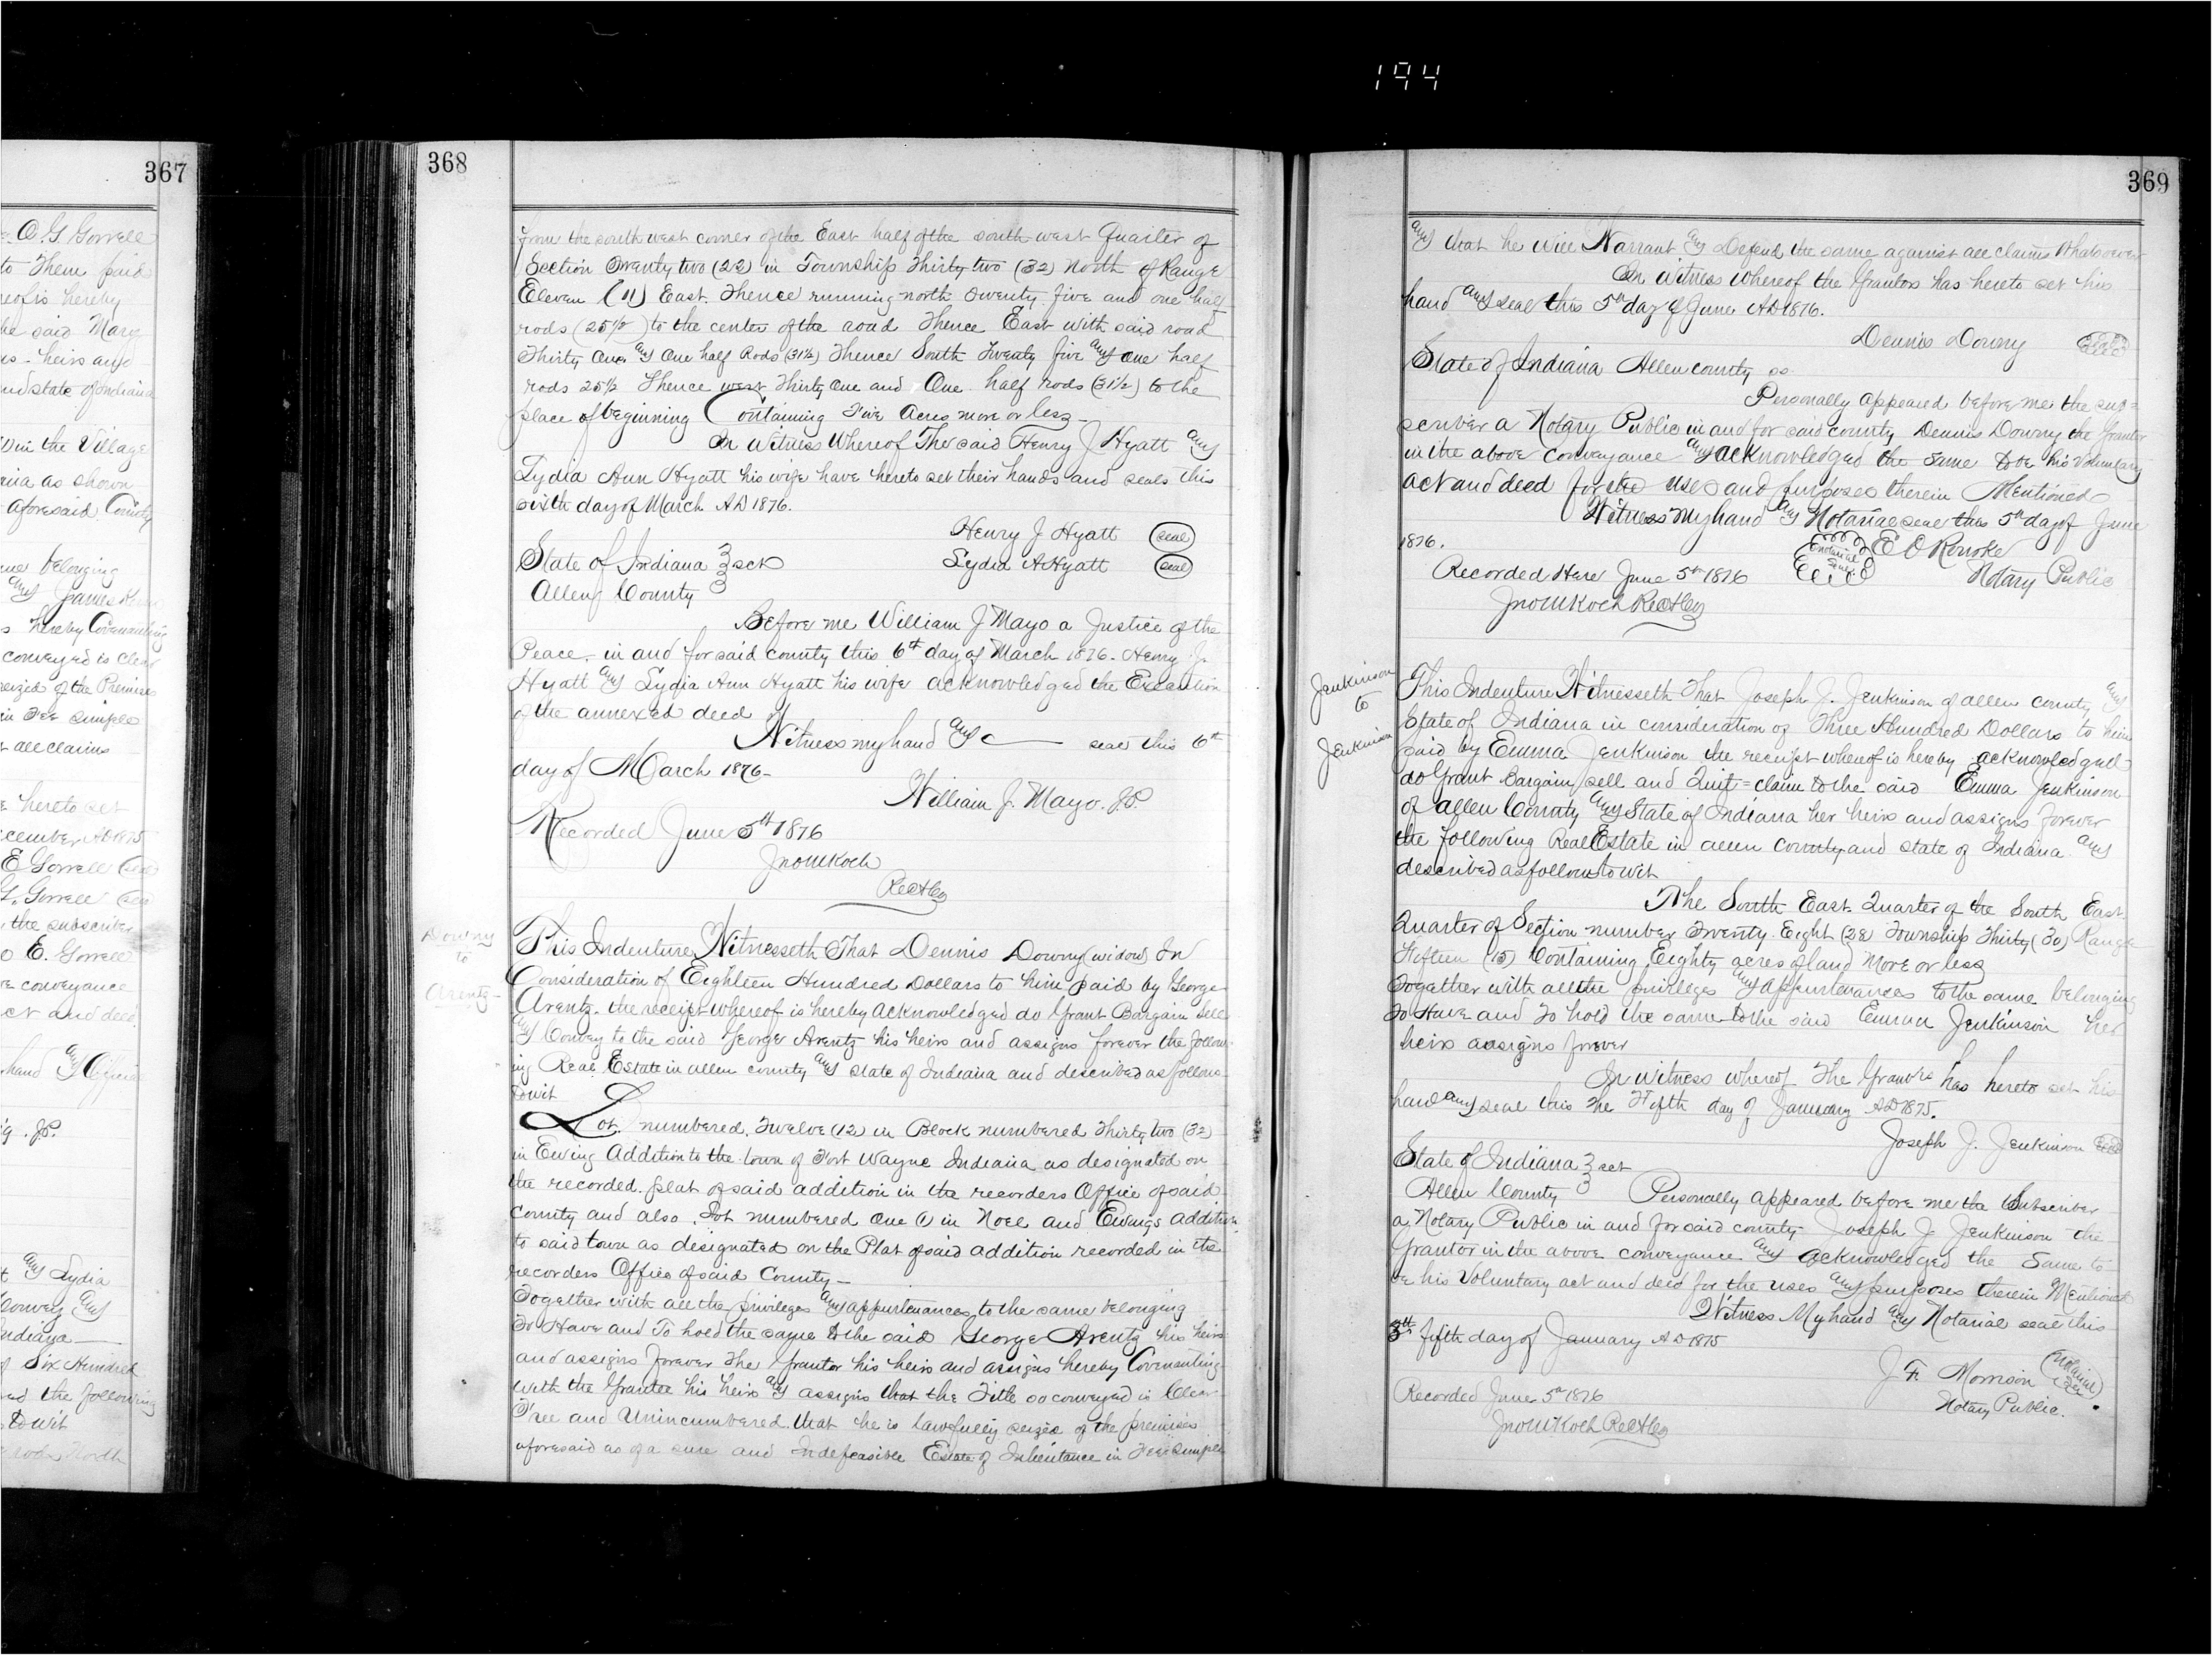 194
367
O. G. Gorrell
to them paid
reof is hereby
he said Mary
heirs and
nd state of Indiana
in the Village
as shown
aforesaid County
belonging
and James
hereby Covenanting
conveyed is clear
seized of the Premises
in Fee simple
all claims
hereto set
cember AD 1875
E Gorrell (seal)
G. Gorrell (seal)
the subscriber
E. Gorrell
conveyance
act and deed
hand and Official
J.P.
and Lydia
Convey and
Indiana
of Six Hundred
the following
to wit
rods North
368
from the south west corner of the East half of the south west Quarter of
Section Twenty two (22) in Township Thirty two (32) North of Range
Eleven (11) East. Thence running north Twenty five and one half
rods (25 1/2) to the center of the road Thence East with said road
Thirty One and One half Rods (31 1/2) Thence South Twenty five and one half
rods 25 1/2 Thence west Thirty One and One half rods (31 1/2) to the
place of beginning Containing Five Acres more or less
In Witness Whereof The said Henry J Hyatt and
Lydia Ann Hyatt his wife have hereto set their hands and seals this
sixth day of March AD 1876.
Henry J Hyatt (seal)
State of Indiana } sct Lydia A Hyatt (seal)
Allen County }
Before me William J Mayo a Justice of the
Peace in and for said county this 6th day of March 1876. Henry J.
Hyatt and Lydia Ann Hyatt his wife acknowledged the Execution
of the annexed deed
Witness my hand and seal this 6th
day of March 1876
William J. Mayo. J.P.
Recorded June 5th 1876
Jno M Koch
RecAlCo
Downy
to
Arentz
This Indenture Witnesseth That Dennis Downy (widow) In
Consideration of Eighteen Hundred Dollars to him paid by George
Arentz. the receipt whereof is hereby acknowledged do Grant Bargain Sell
and Convey to the said George Arentz his heirs and assigns forever the follow
ing Real Estate in allen county and state of Indiana and described as follows
towit
Lot numbered Twelve (12) in Block numbered Thirty two (32)
in Ewing Addition to the town of Fort Wayne Indiana as designated on
the recorded plat of said addition in the recorders Office of said
county and also Lot numbered One (1) in Noel and Ewings addition
to said town as designated on the Plat of said addition recorded in the
recorders Office of said County
Together with all the privileges and appurtenances to the same belonging
To Have and To hold the same to the said George Arentz his heirs
and assigns forever The Grantor his heirs and assigns hereby Covenanting
with the Grantee his heirs and assigns that the Title so conveyed is Clear
Free and Unincumbered that he is lawfully seized of the premises
aforesaid as of a sure and Indefeasible Estate of Inheritance in Fee Simple
369
and that he will Warrant and Defend the same against all claims Whatsoever
In witness whereof the Grantor has hereto set his
hand and seal this 5th day of June AD 1876.
Dennis Downy (seal)
State of Indiana Allen county ss
Personally appeared before me the sub=
scriber a Notary Public in and for said county Dennis Downy the Grantor
in the above conveyance and acknowledged the same to be his voluntary
act and deed for the uses and purposes therein Mentioned
Witness my hand and Notarial seal this 5th day of June
1876.
(notarial seal) E O Rourke
Recorded Here June 5th 1876 Notary Public
Jno M Koch RecAlCo
Jenkinson
to
Jenkinson
This Indenture Witnesseth That Joseph J. Jenkinson of allen county and
State of Indiana in consideration of Three Hundred Dollars to him
paid by Emma Jenkinson the receipt whereof is hereby acknowledged
do Grant Bargain sell and Quit=claim to the said Emma Jenkinson
of allen County and State of Indiana her heirs and assigns forever
the following Real Estate in allen County and state of Indiana and
described as follows to wit
The South East Quarter of the South East
Quarter of Section number Twenty Eight (28) Township Thirty (30) Range
Fifteen (15) Containing Eighty acres of land More or less
Together with all the privileges and appurtenances to the same belonging
To Have and To hold the same to the said Emma Jenkinson her
heirs assigns forever
In witness whereof The Grantor has hereto set his
hand and seal this the Fifth day of January AD 1875.
Joseph J. Jenkinson (seal)
State of Indiana } sct
Allen County } Personally appeared before me the Subscriber
a Notary Public in and for said county Joseph J Jenkinson the
Grantor in the above conveyance and acknowledged the Same to
be his Voluntary act and deed for the uses and purposes therein Mentioned
Witness My hand and Notarial seal this
5th fifth day of January AD 1875
J F. Morrison (Notarial seal)
Recorded June 5th 1876 Notary Public.
Jno M Koch RecAlCo